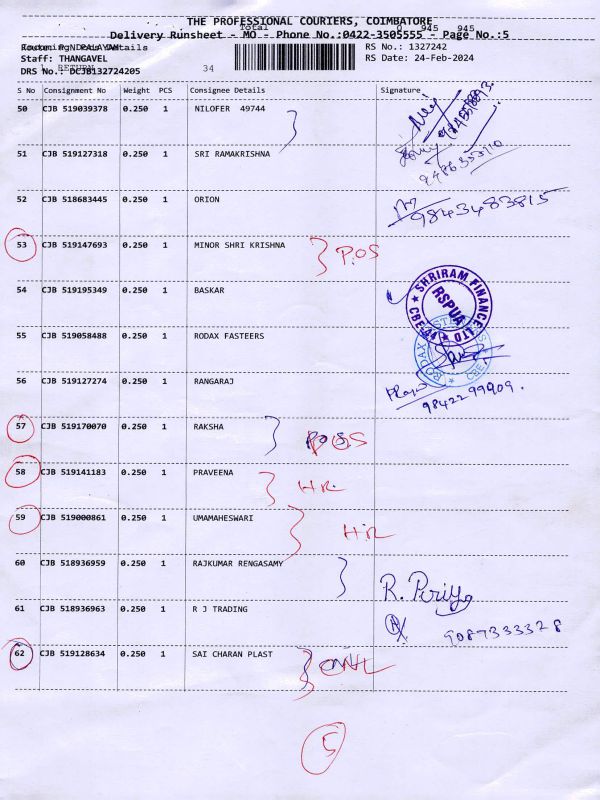 THE PROFESSIONAL COURIERS, COIMBATORE
Total 0 945 945
Delivery Runsheet - MO - Phone No.:0422-3505555 - Page No.:5
RS No.: 1327242
Staff: THANGAVEL
RS Date: 24-Feb-2024
RETURN
DRS No.: DCJB132724205
34
S No Consignment No Weight PCS Consignee Details Signature
50 CJB 519039378 0.250 1 NILOFER 49744
51 CJB 519127318 0.250 1 SRI RAMAKRISHNA
52 CJB 518683445 0.250 1 ORION
9843483815
53 CJB 519147693 0.250 1 MINOR SHRI KRISHNA P.OS
54 CJB 519195349 0.250 1 BASKAR
SHRIRAM FINANCE LTD
RSPUA
CBE-44
55 CJB 519058488 0.250 1 RODAX FASTEERS
RODAX
CBE
56 CJB 519127274 0.250 1 RANGARAJ
9842299909.
57 CJB 519170070 0.250 1 RAKSHA POS
58 CJB 519141183 0.250 1 PRAVEENA HR
59 CJB 519000861 0.250 1 UMAMAHESWARI HR
60 CJB 518936959 0.250 1 RAJKUMAR RENGASAMY
R. Periy
61 CJB 518936963 0.250 1 R J TRADING
9087333328
62 CJB 519128634 0.250 1 SAI CHARAN PLAST
5